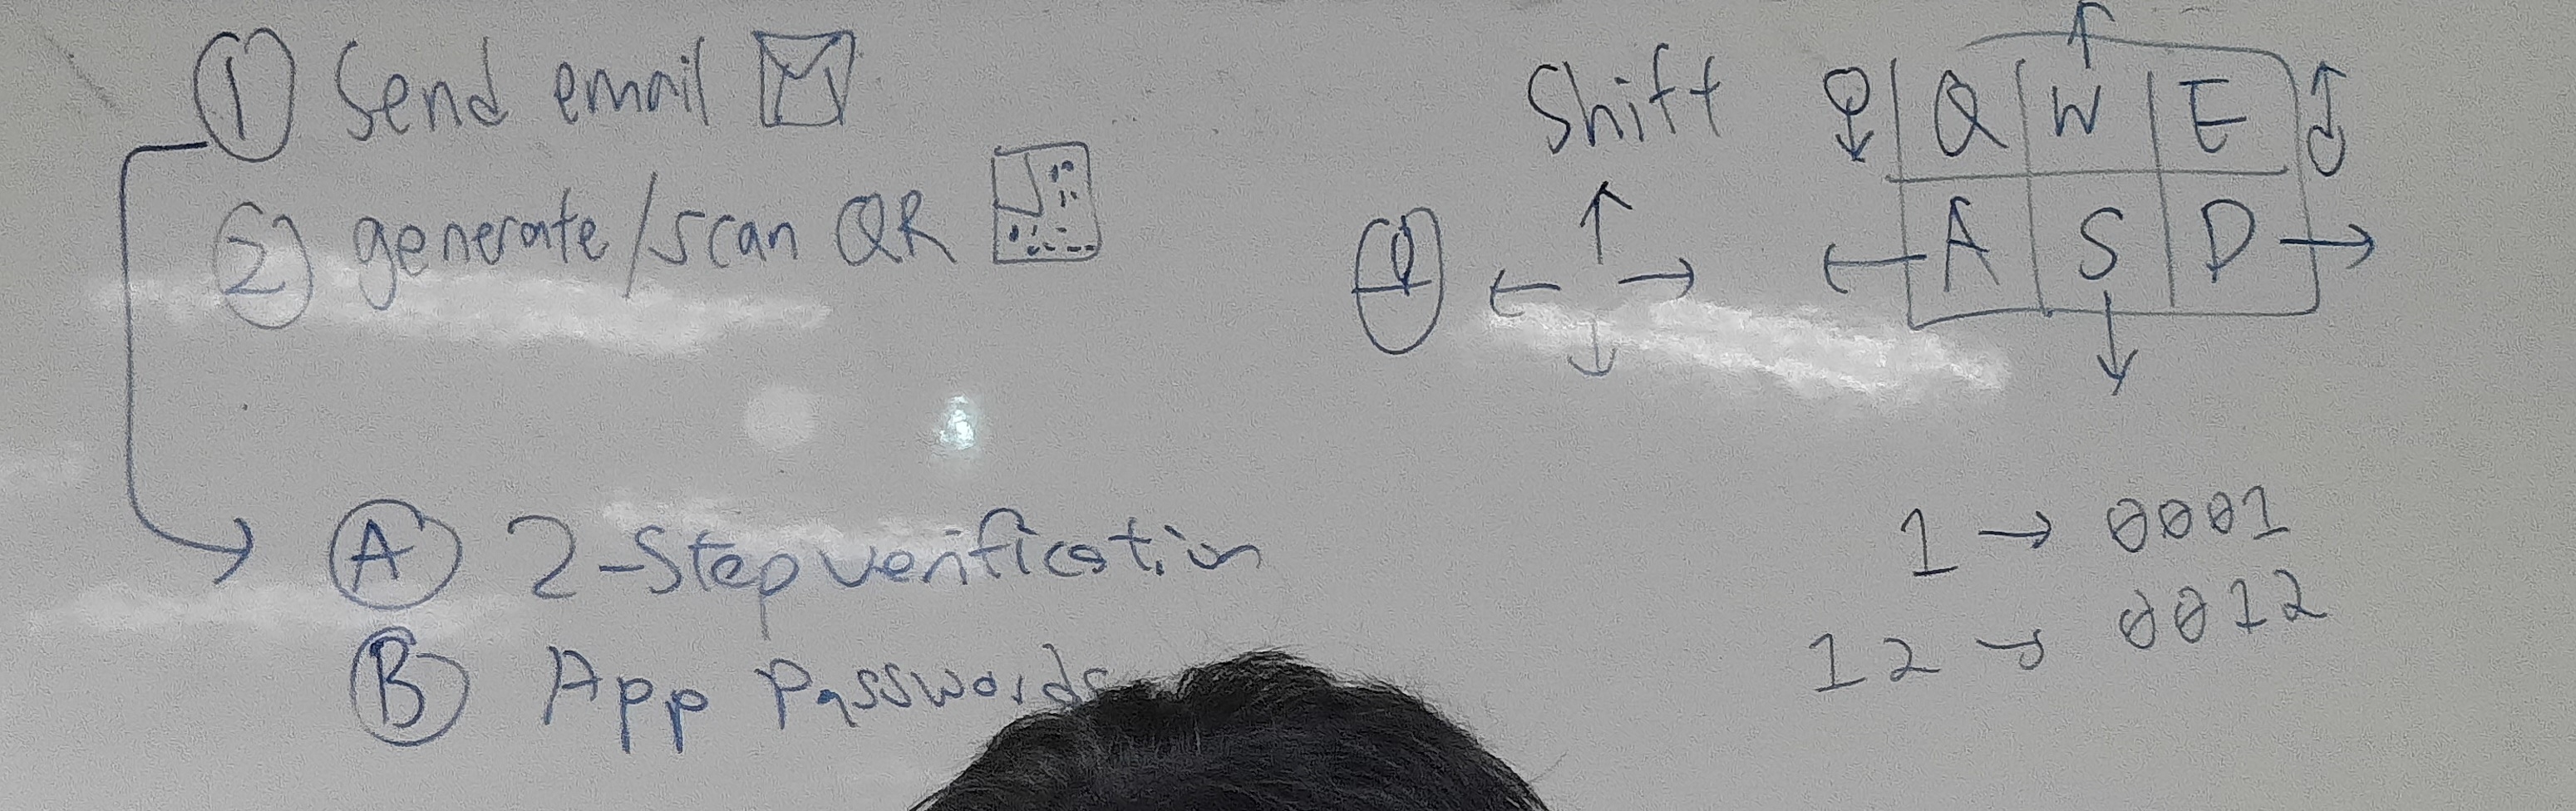 ① Send email
② generate/scan QR
Ⓐ 2-Step verification
Ⓑ App Passwords
Shift
Q W E
A S D
1 → 0001
12 → 0012